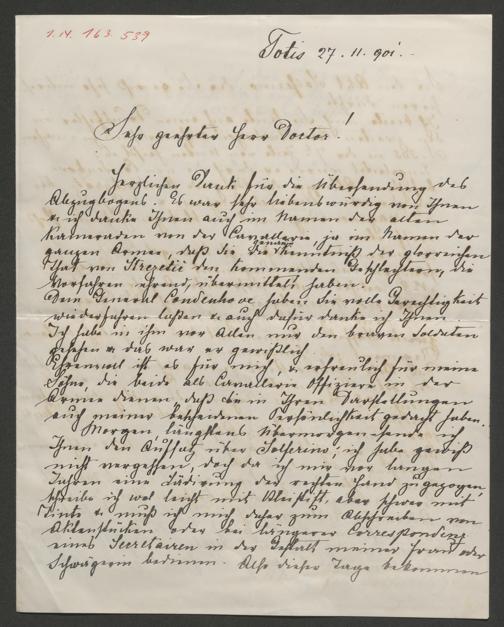 I.N. 163.539
Totis 27.11.901.
Sehr geehrter Herr Doctor!
Herzlichen Dank für die Übersendung des
Abzugbogens. Es war sehr liebenswürdig von Ihnen
u. ich danke Ihnen auch im Namen der alten
Kameraden von der Cavallerie, ja im Namen der
ganzen Armee, daß Sie die genaue Kenntniß der glorreichen
That von Strezetic den kommenden Geschlechtern, die
Vorfahren ehrend, übermittelt haben.
Dem General Coudenhove haben Sie volle Gerechtigkeit
wiederfahren laßen u. auch dafür danke ich Ihnen
Ich habe in ihm vor Allem nur den braven Soldaten
gesehen u. das war er gewißlich
Ehrenvoll ist es für mich, u. erfreulich für meine
Söhne, die beide als Cavallerie Offiziere in der
Armee dienen, daß Sie in Ihren Darstellungen
auch meiner bescheidenen Persönlichkeit gedacht haben.
Morgen längstens übermorgen sende ich
Ihnen den Aufsatz über Solferino; ich habe gewiß
nicht vergessen, doch da ich mir vor langen
Jahren eine Lädirung der rechten Hand zugezogen,
schreibe ich wol leicht mit Bleistift, aber schwer mit
Tinte u. muß ich mich daher zum Abschreiben von
Aktenstücken oder bei längerer Correspondenz
eines Secretairen in der Gestalt meiner Frau oder
Schwägerin bedienen. Also dieser Tage bekommen